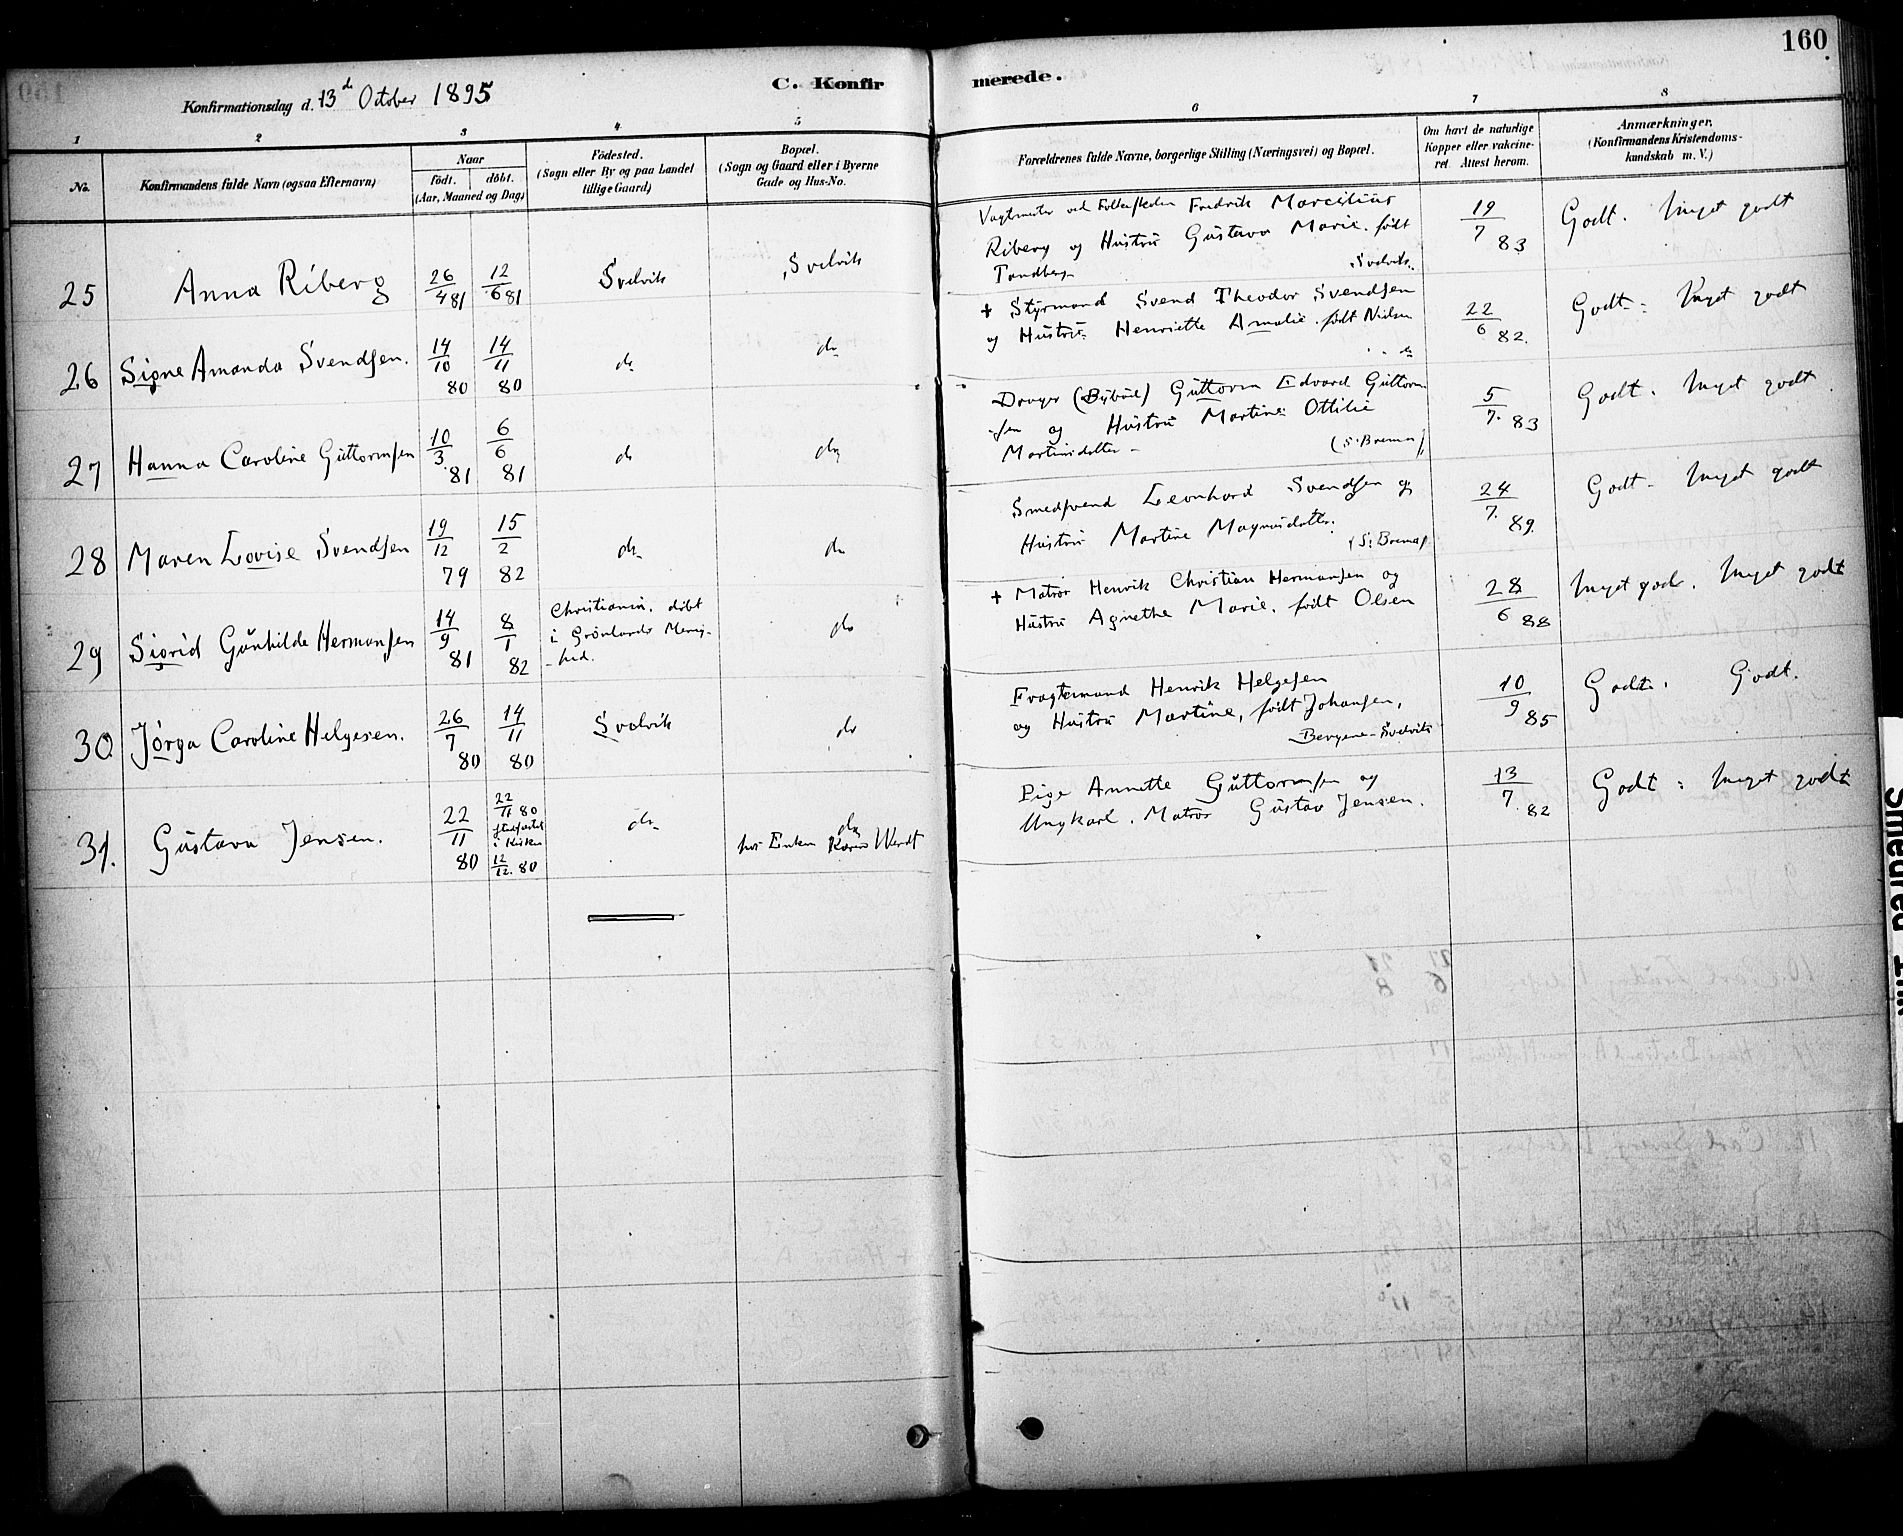 160
Konfirmationsdag d. 13de October 1895
C. Konfirmerede.
1 2 3 4 5 6 7 8
No.
Konfirmandens fulde Navn (ogsaa Efternavn)
Naar
født. døbt.
(Aar, Maaned og Dag)
Födested.
(Sogn eller By og paa Landet
tillige Gaard)
Bopæl.
(Sogn og Gaard eller i Byerne
Gade og Hus-No.
Forældrenes fulde Navne, borgerlige Stilling (Næringsvei) og Bopæl.
Om havt de naturlige
Kopper eller vakcine-
ret. Attest herom.
Anmærkninger,
(Konfirmandens Kristendoms-
kundskab m. V.)
25 Anna Riberg 26/4 81 12/6 81 Svelvik Svelvik
Fredrik Marcelius
Riberg og Hustru Gustava Marie. født
Tandberg Svelvik.
19/7 83 Godt. Meget godt
26 Signe Amanda Svendsen. 14/10 80 14/11 80 do do
+ Styrmand Svend Theodor Svendsen
og Hustru Henriette Amalie. født Nielsen
do
22/6 82. Godt. Meget godt
27 Hanna Caroline Guttormsen 10/3 81 6/6 81 do do
Guttorm Edvard Guttorm-
sen og Hustru Martine Ottilie
Martinsdatter
5/7. 83 Godt. Meget godt
28 Maren Lovise Svendsen 19/12 79 15/2 82 do do
Smedsvend Leonhard Svendsen og
Hustru Martine Magnusdatter.
24/7. 89. Godt. Meget godt
29 Sigrid Gunhilde Hermansen 14/9 81 8/1 82 Christiania. døbt
i Grönlands Menig-
-hed. do
+ Matros Henrik Christian Hermansen og
Hustru Agnethe Marie. født Olsen
28/6 88 Meget godt. Meget godt
30. Jørga Caroline Helgesen. 26/7 80 14/11 80 Svelvik do
Henrik Helgesen
og Hustru Martine, født Johansen,
Bergene-Svelvik
10/9 85 Godt. Godt.
31. Gustava Jensen. 22/11 80 22/11 80
i Kirken
12/12. 80 do do
hos Enken Karen Werdt
Pige Annette Guttormsen og
Ungkarl. Matros Gustav Jensen.
13/7. 82 Godt. Meget godt